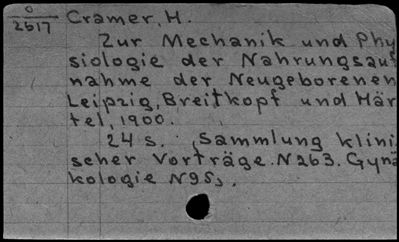 0
2517
Cramer, H.
Zur Mechanik und Phy
siologie der Nahrungsauf
nahme der Neugeborenen
Leipzig, Breitkopf und Här
tel, 1900.
24 s. „Sammlung klini
scher Vorträge. N263. Gynä
kologie N95„.